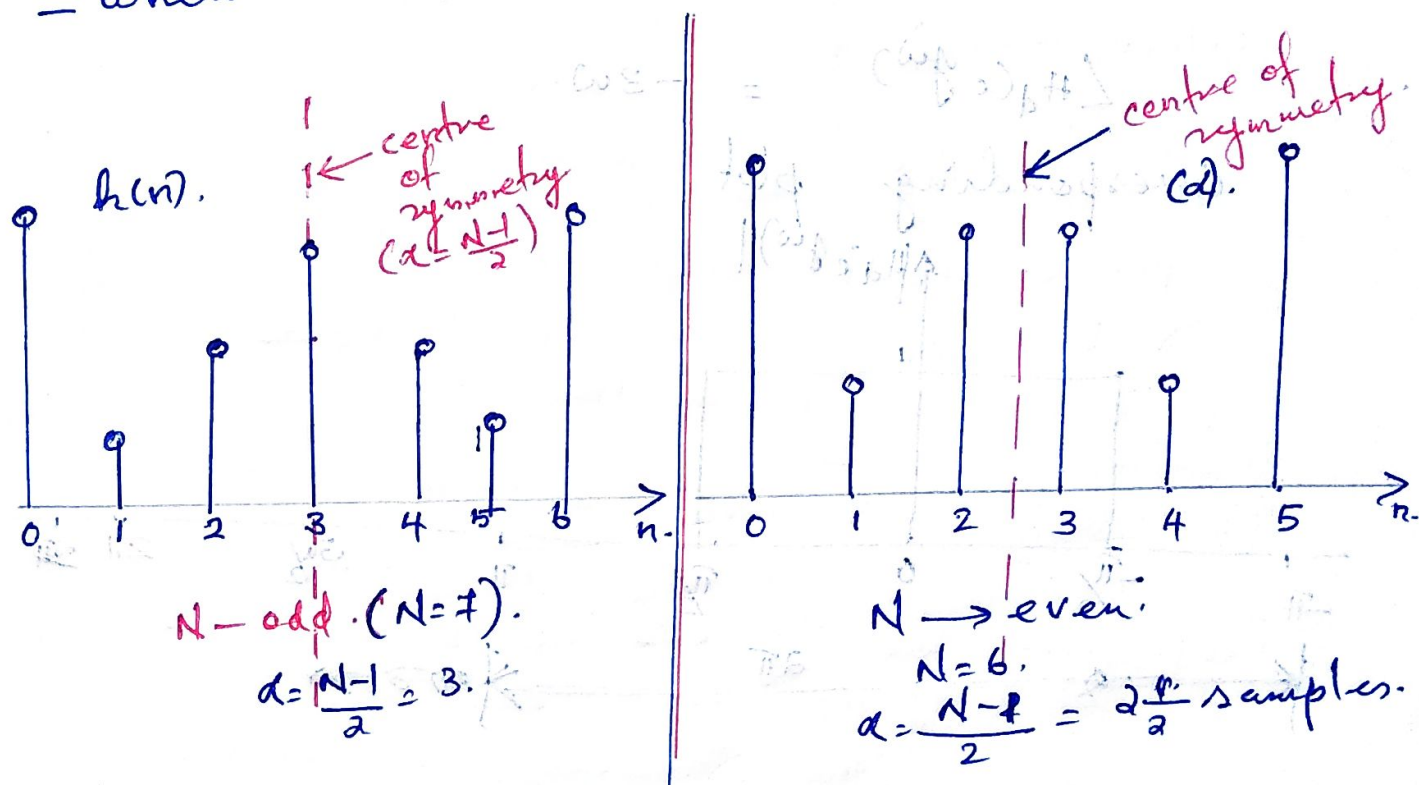 h(n).
centre
of
symmetry
(α = N-1/2)
0 1 2 3 4 5 6 n.
N - odd. (N=7).
α = N-1/2 = 3.
centre of
symmetry.
(α).
0 1 2 3 4 5 n.
N → even.
N=6.
α = N-1/2 = 2 1/2 samples.